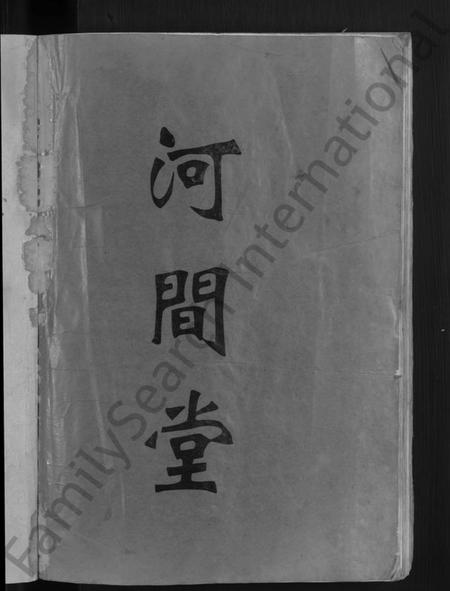 河間堂
FamilySearch International